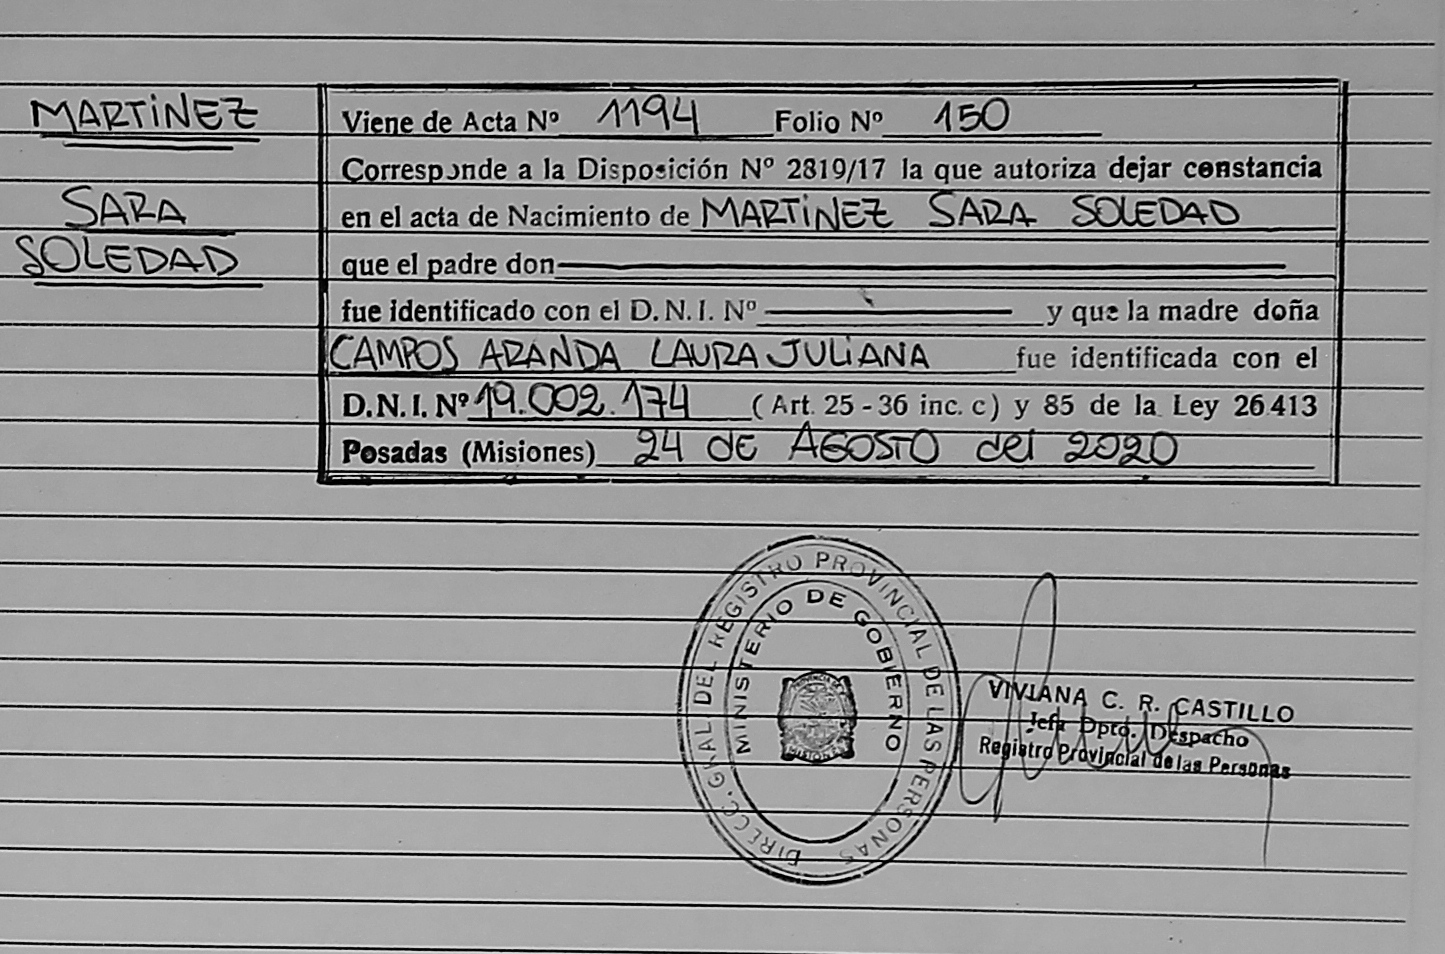 MARTINEZ
SARA
SOLEDAD
Viene de Acta Nº 1194 Folio Nº 150
Corresponde a la Disposición Nº 2819/17 la que autoriza dejar constancia
en el acta de Nacimiento de MARTINEZ SARA SOLEDAD
que el padre don
fue identificado con el D.N.I. Nº y que la madre doña
CAMPOS ARANDA LAURA JULIANA fue identificada con el
D.N.I. Nº 19.002.174 (Art. 25 - 36 inc. c) y 85 de la Ley 26413
Posadas (Misiones) 24 de AGOSTO del 2020
DIRECC. GRAL DEL REGISTRO PROVINCIAL DE LAS PERSONAS
MINISTERIO DE GOBIERNO
MISIONES
VIVIANA C. R. CASTILLO
Jefa Dpto. Despacho
Registro Provincial de las Personas